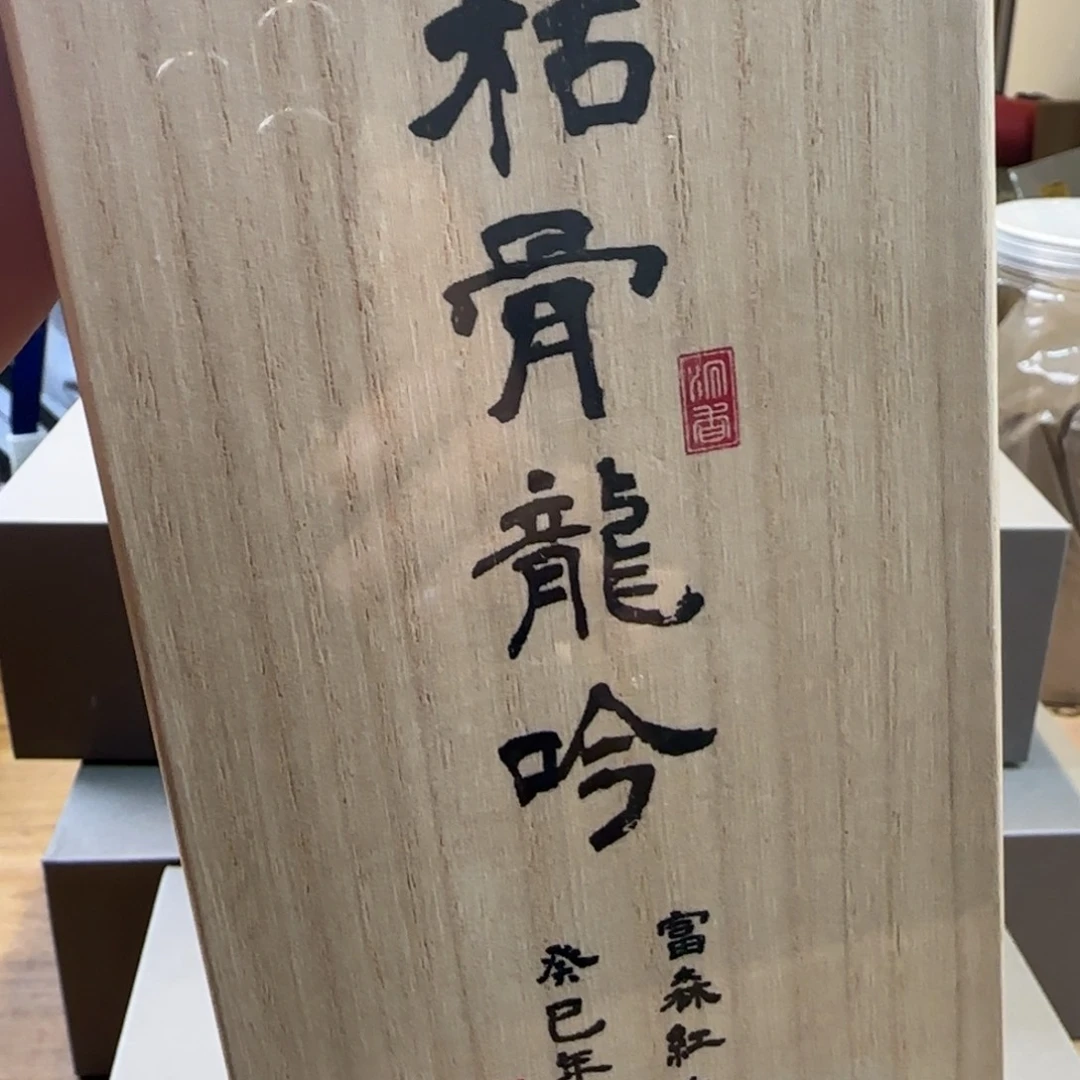 枯骨龍吟
沉香
富森紅
癸巳年